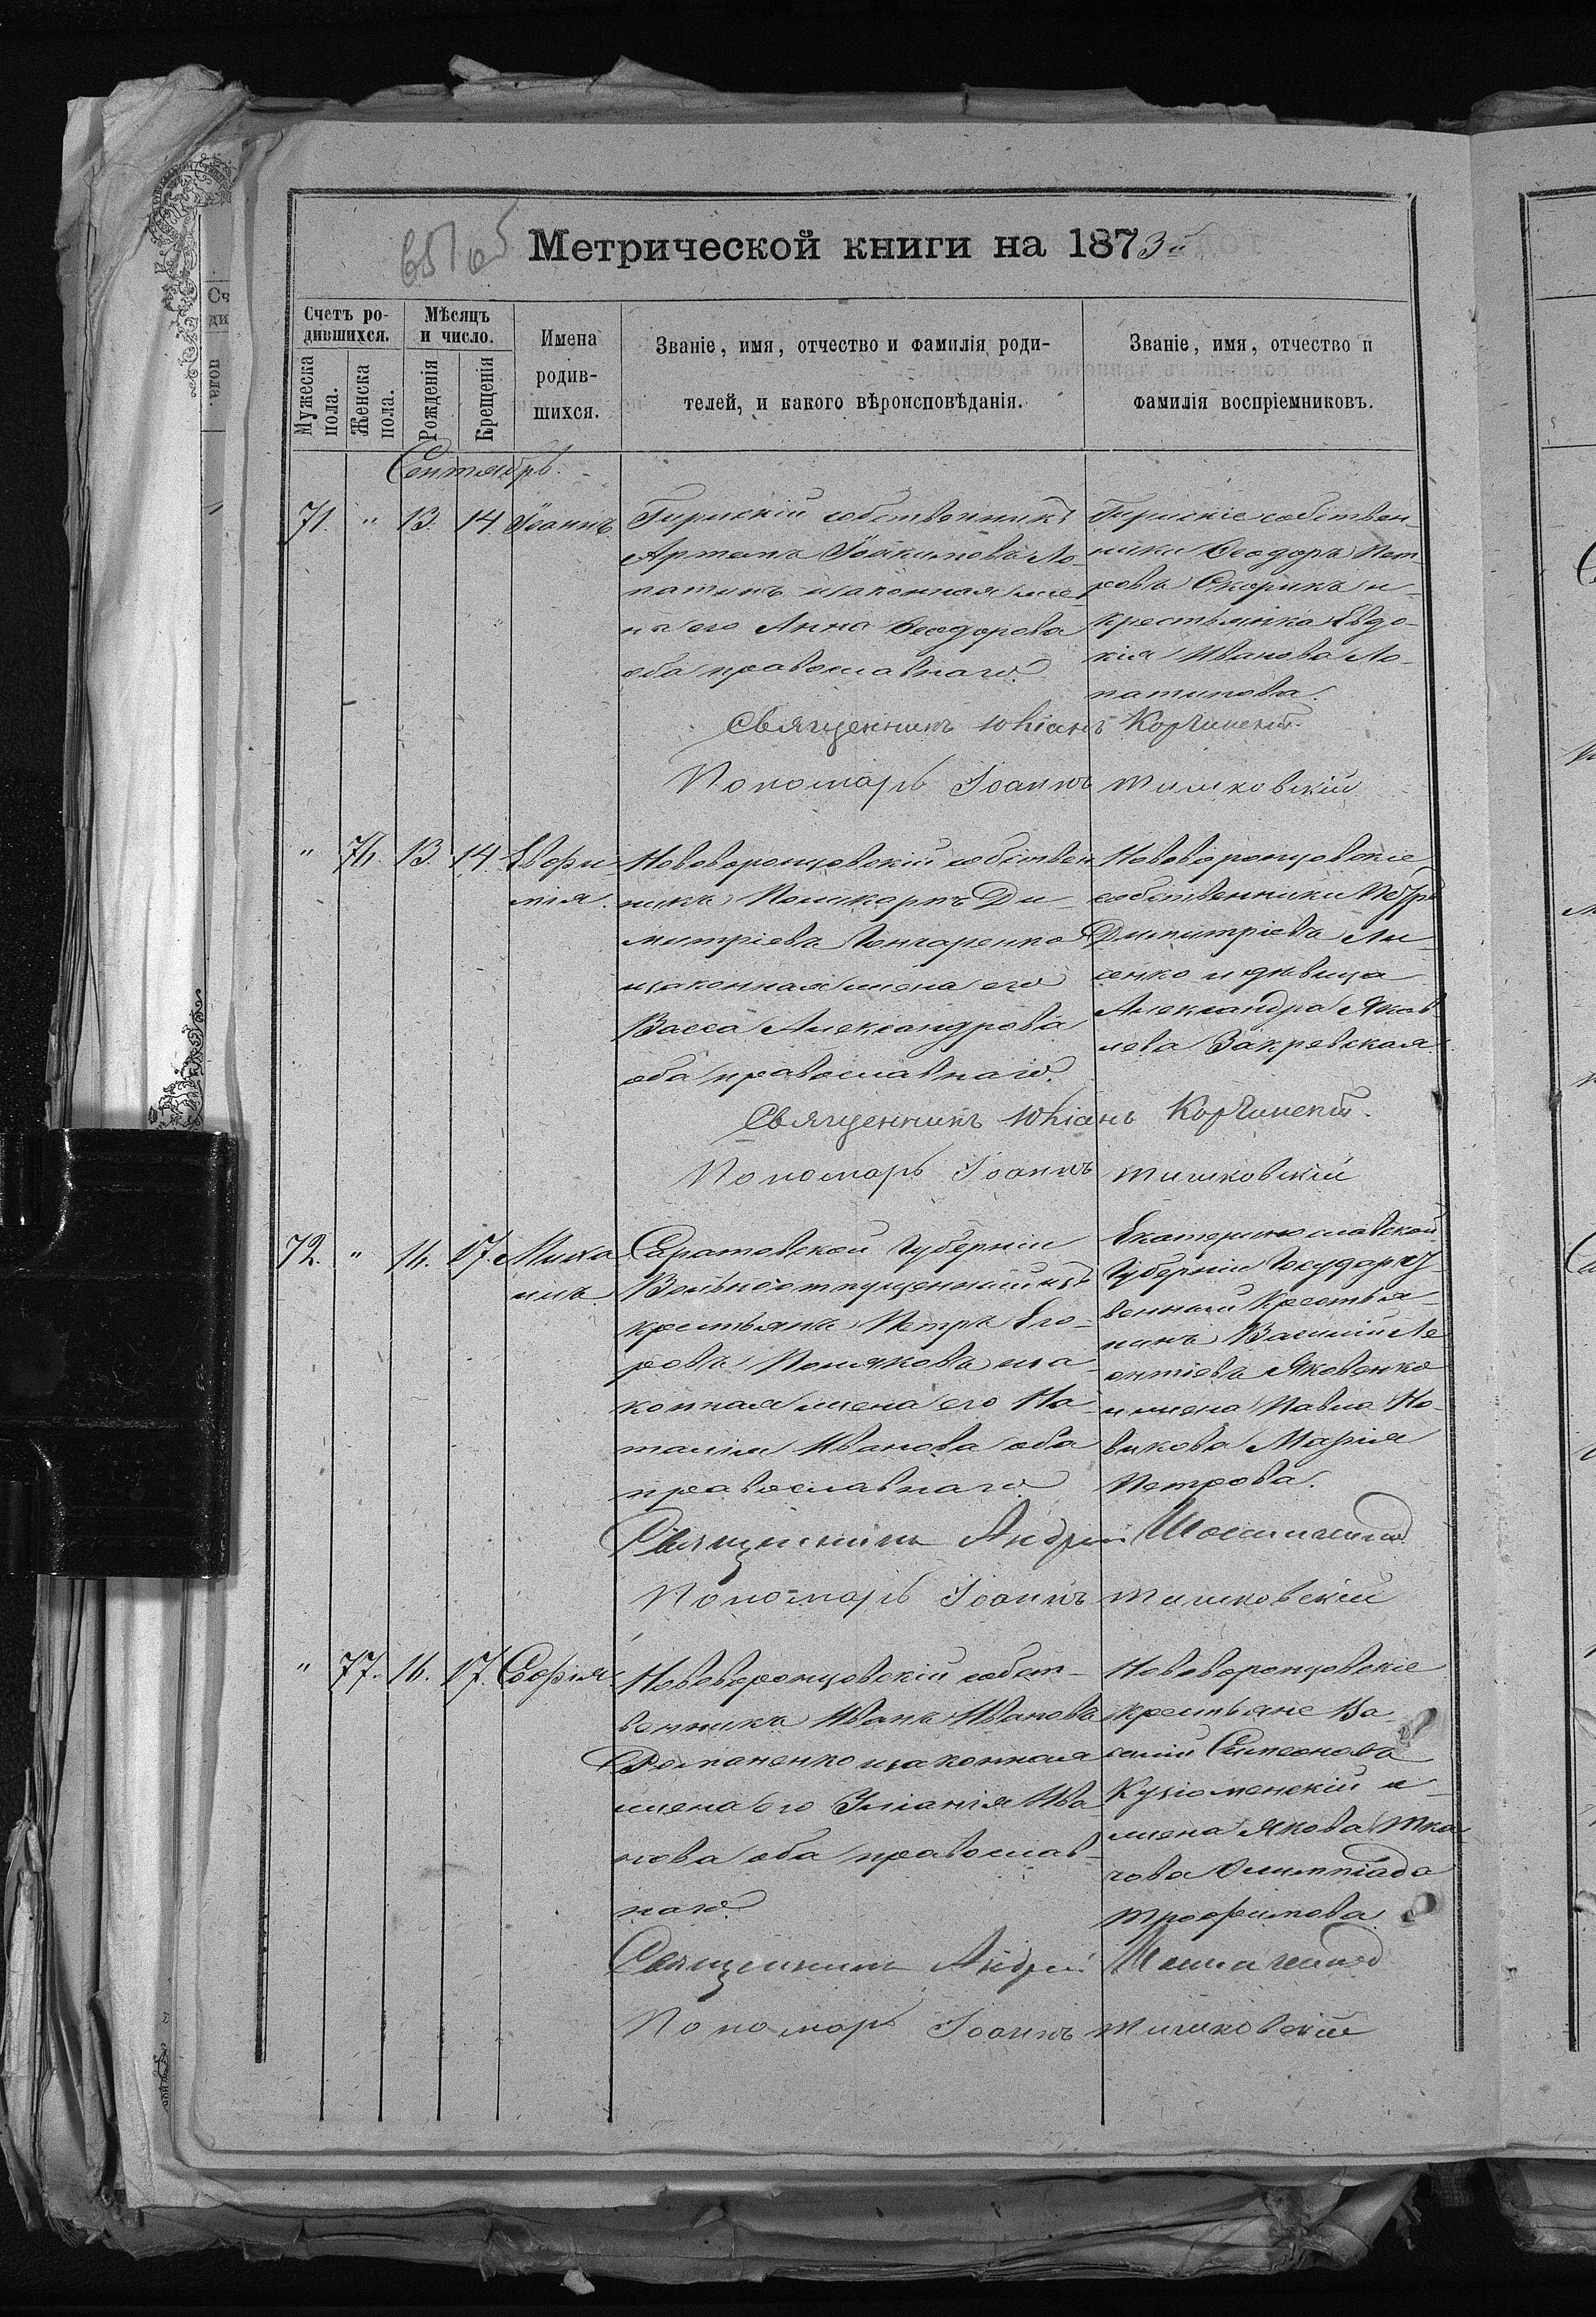 Метрической книги на 1873й
Счетъ ро-
дившихся.
Мужеска
пола.
Женска
пола.
Мѣсяцъ
и число.
Рожденія
Крещенія
Имена
родив-
шихся.
Званіе, имя, отчество и фамилія роди-
телей, и какого вѣроисповѣданія.
Званіе, имя, отчество и
фамилія воспріемниковъ.
Сентябрь.
71. " 13. 14. Іоаннъ
Гирскій собственникъ
Артемъ Іоакимовъ Ло-
патинъ и законная же-
на его Анна Ѳеодорова
оба православнаго.
Гирскіе собствен-
ники Ѳеодоръ Пет-
ровъ Скорикъ и
крестьянка Евдо-
кія Иванова Ло-
патинова.
Священникъ Юліанъ Корчинскій.
Пономарь Іоаннъ Тишковскій
" 76. 13. 14. Евфи-
мія.
Нововоронцовскій собствен
никъ Поликарпъ Ди-
митріевъ Гончаренко
и законная жена его
Васса Александрова
оба православнаго.
Нововоронцовскіе
собственники Петръ
Димитріевъ Ли-
сенко и дѣвица
Александра Яков
лева Закревская.
Священникъ Юліанъ Корчинскій.
Пономарь Іоаннъ Тишковскій
72. " 16. 17. Миха
илъ.
Саратовской Губерніи
Вольноотпущенный изъ
крестьянъ Петръ Его-
ровъ Поляковъ и за-
конная жена его На-
талія Иванова оба
православнаго.
Екатеринославской
Губерніи Государст
венный Крестья-
нинъ Василій Ле
онтіевъ Яковенко
и жена Павла Но-
викова Марія
Петрова.
Священникъ Андрей
Пономарь Іоаннъ Тишковскій
" 77. 16. 17. Софія.
Нововоронцовскій собст-
венникъ Иванъ Ивановъ
Романенко и законная
жена его Уліанія Ива
нова оба православ-
наго.
Нововоронцовскіе
крестьяне Ва
силій Симеоновъ
Кузіоменскій и
жена Якова Тка
чова Олимпіада
Трофимова.
Священникъ Андрей
Пономарь Іоаннъ Тишковскій